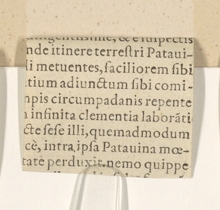 nde itinere terrestri Pataui-
li metuentes, faciliorem sibi
tium adiunctum sibi comi-
npis circumpadanis repente
a infinita clementia laborāti
cte sese illi, quemadmodum
cè, intra, ipsa Patauina mœ-
tate perduxit. nemo quippe